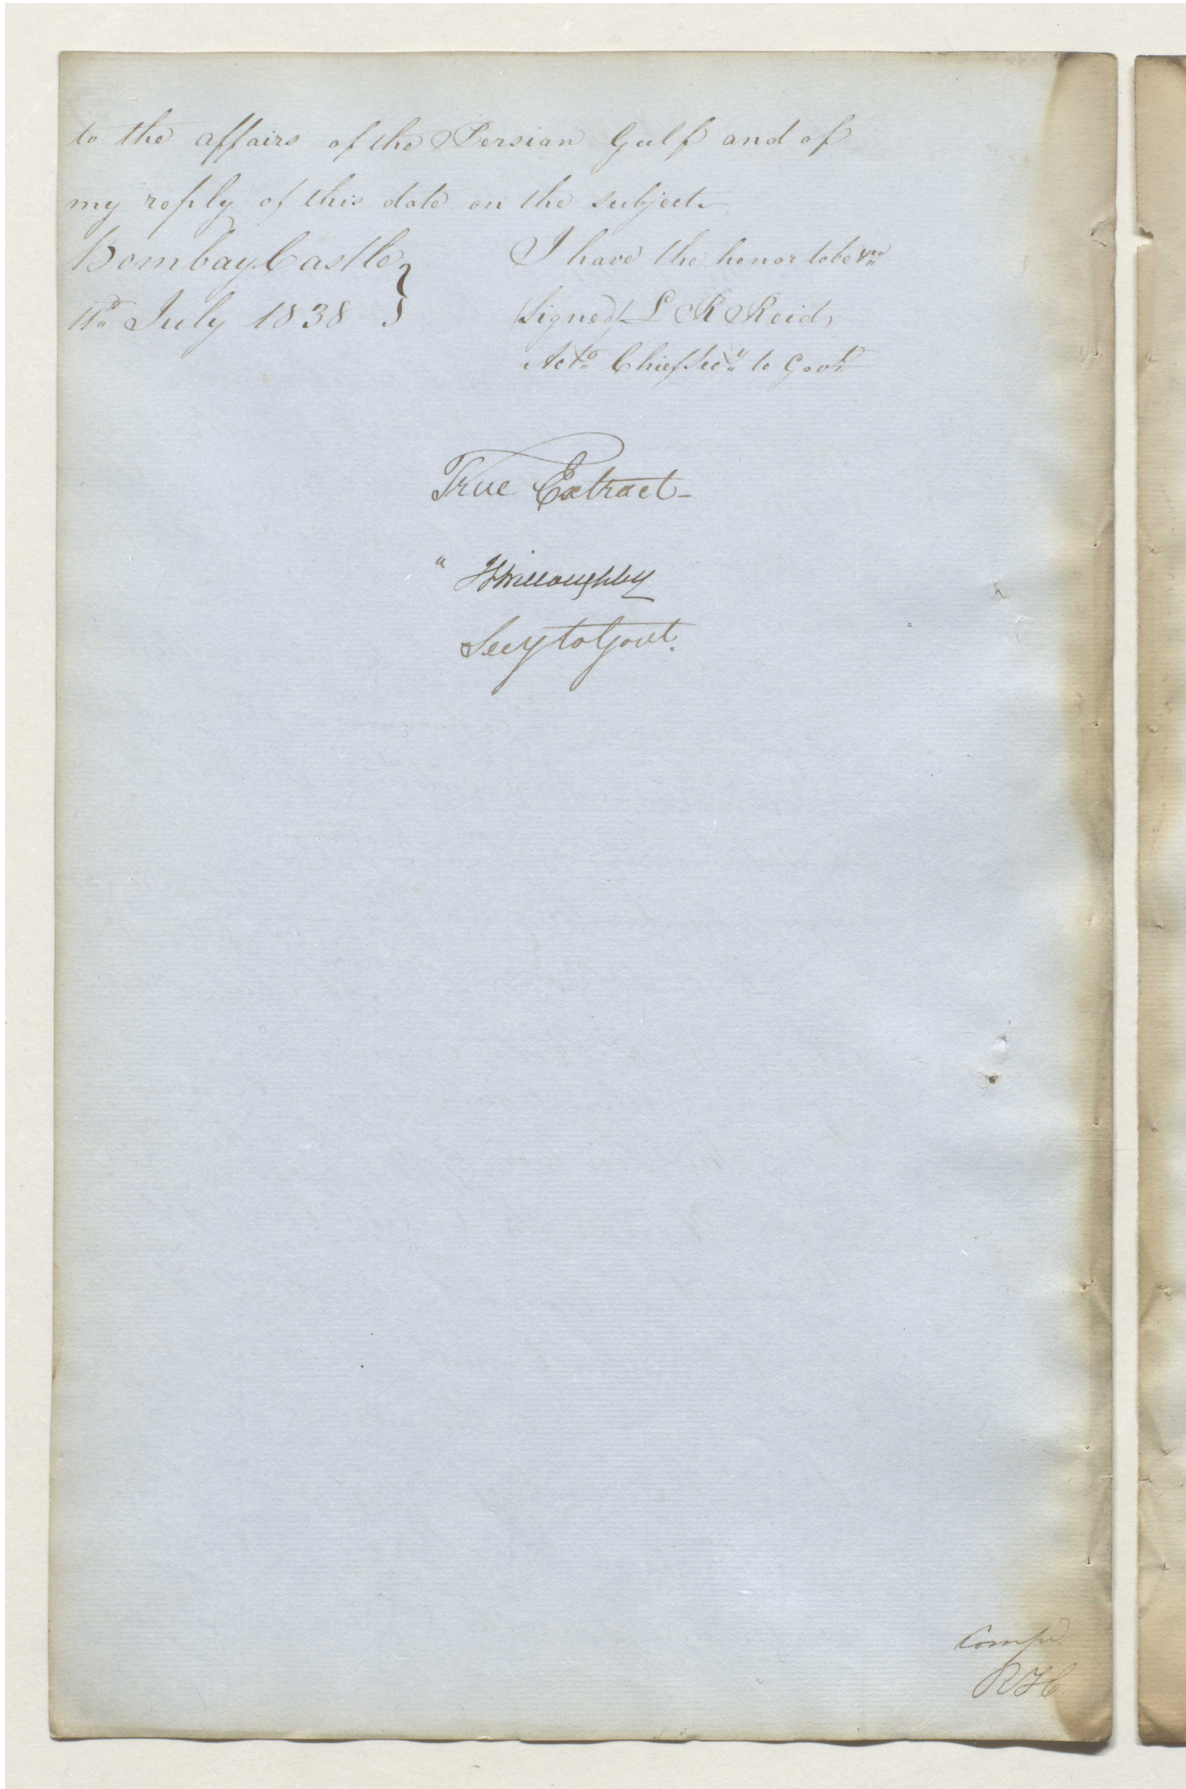 to the affairs of the Persian Gulf and of
my reply of this date on the subject
Bombay Castle } I have the honor to be &ca
11th July 1838 } (Signed) L R Reid,
Actg Chief Secy to Govt
True Extract -
" JP Willoughby
Secy to Govt.
Compd